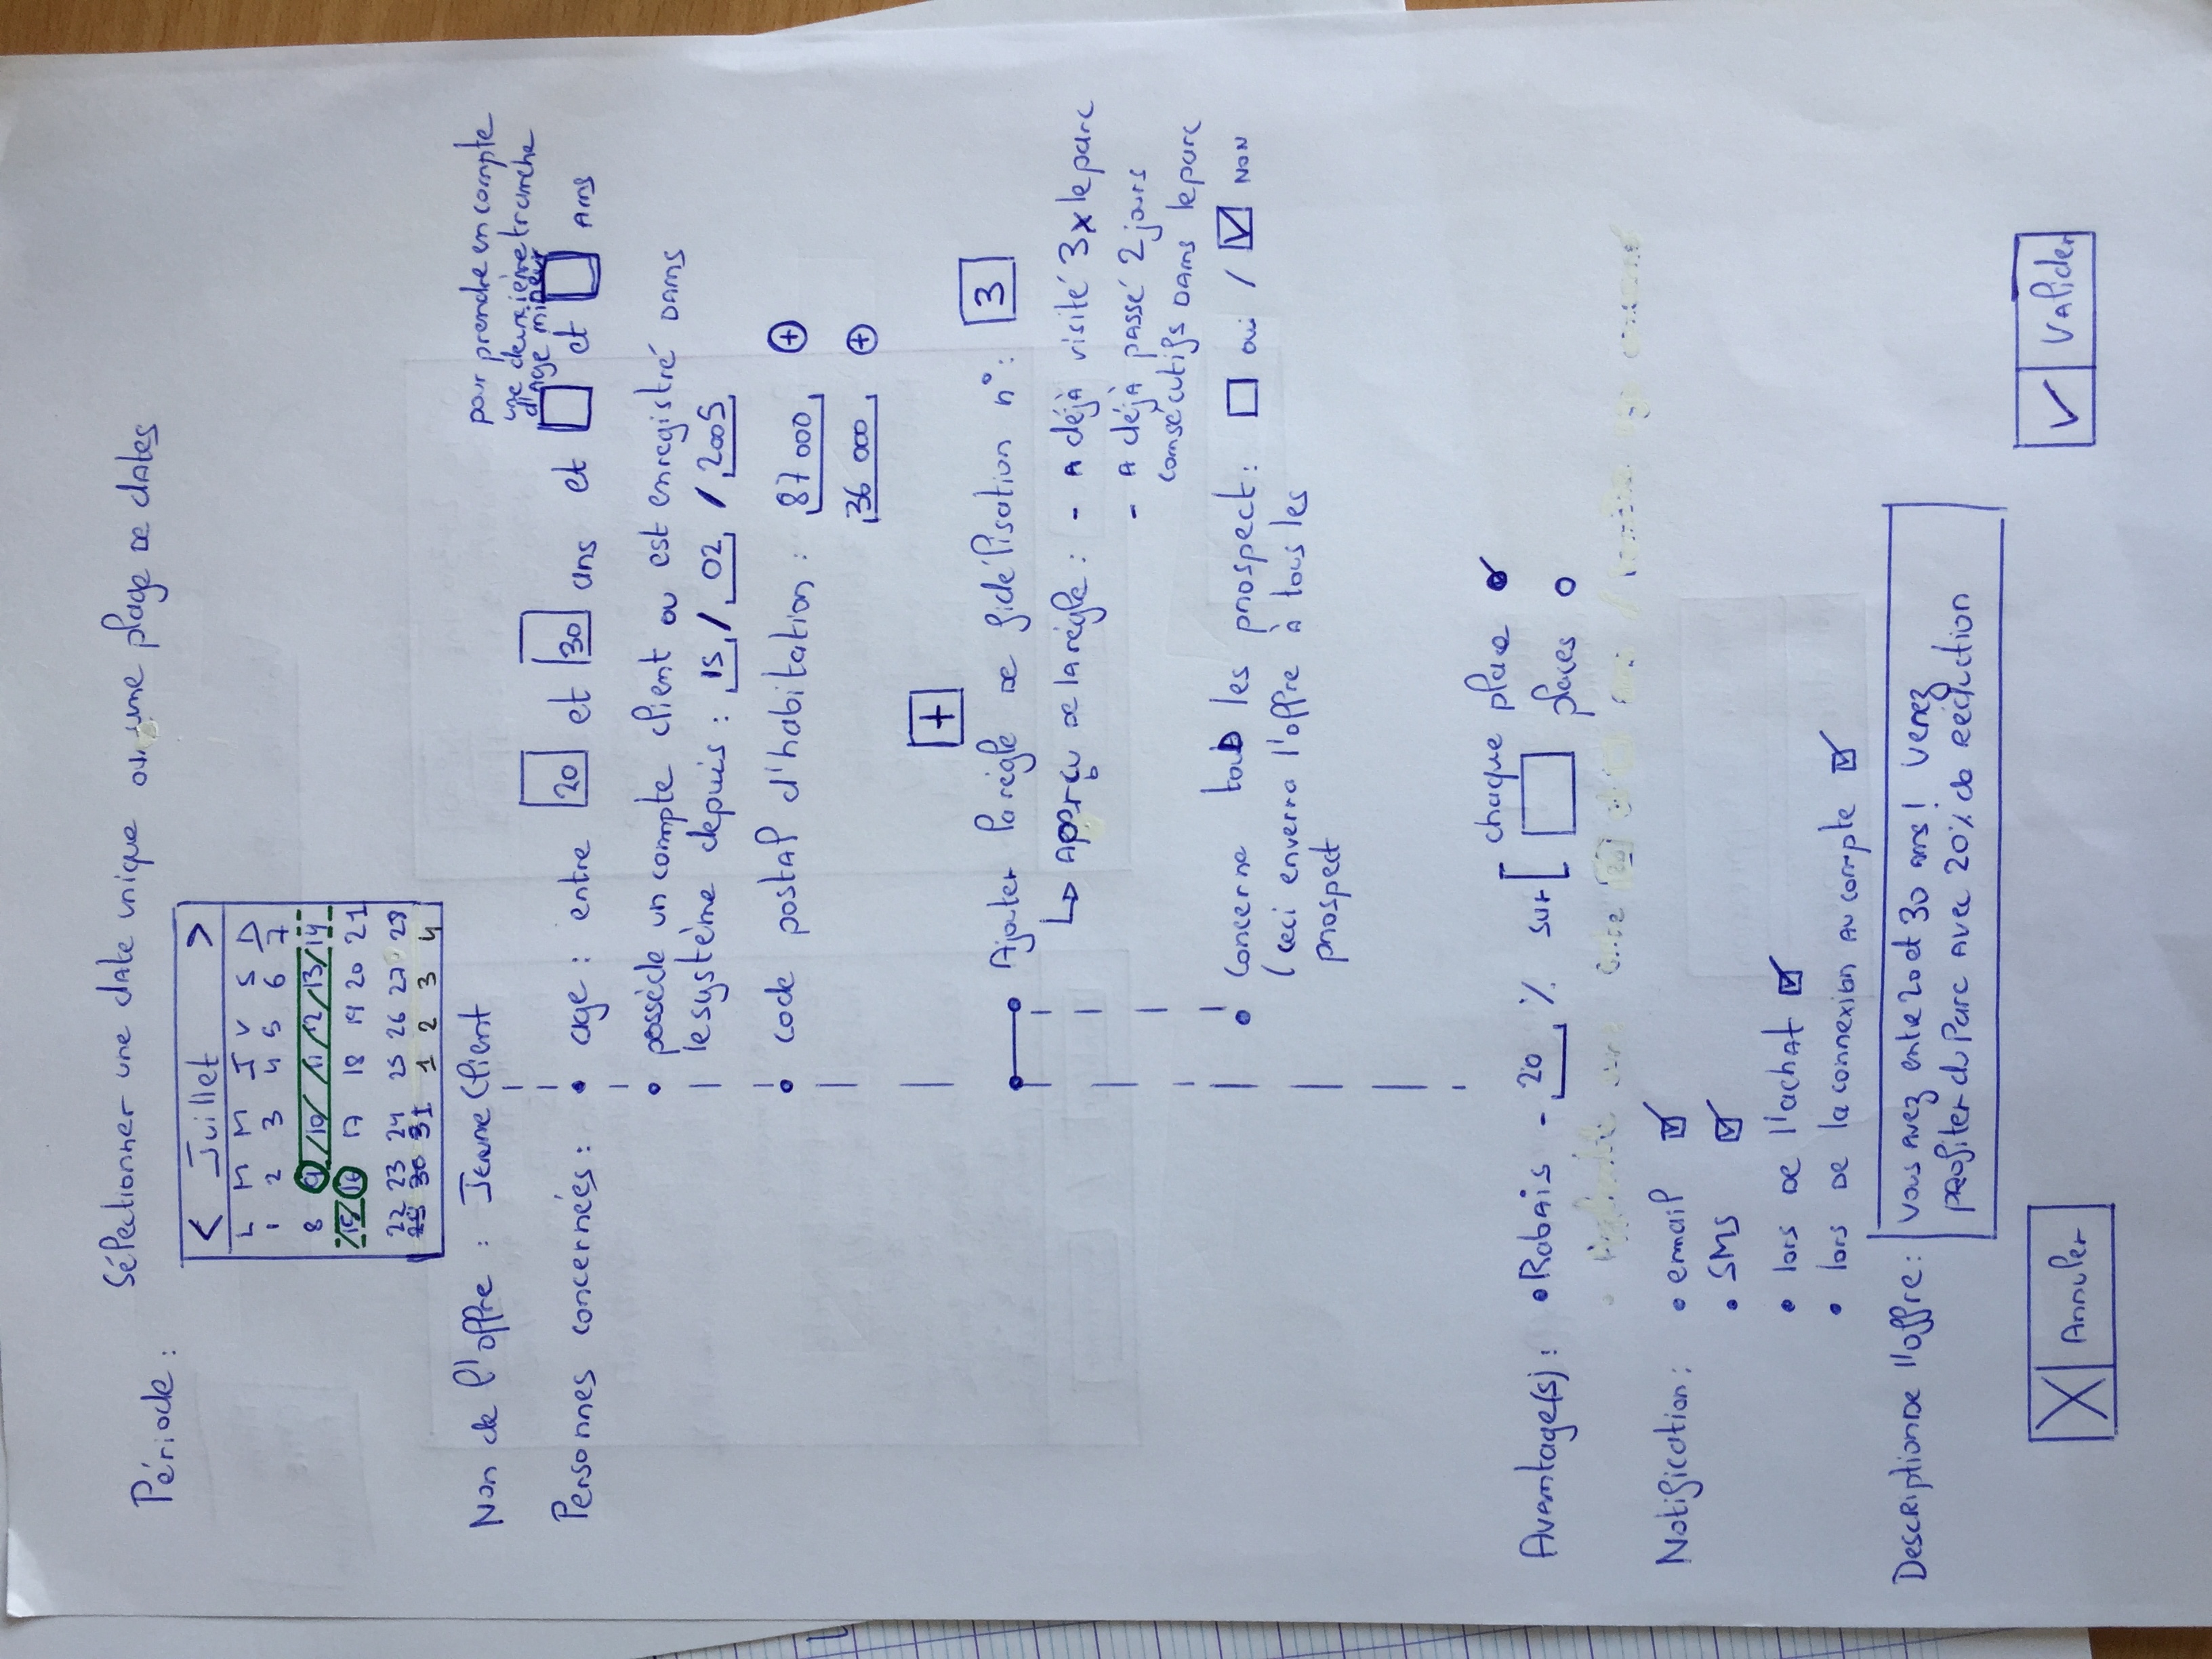 Sélectionner une date unique ou une plage de dates
Période :
< Juillet >
L M M J V S D
1 2 3 4 5 6 7
8 9 10 11 12 13 14
15 16 17 18 19 20 21
22 23 24 25 26 27 28
29 30 31 1 2 3 4
Non de l'offre : Jeune Client
pour prendre en compte
une deuxième tranche
d'age mineur
Personnes concernées : • age : entre 20 et 30 ans et et ans
• possède un compte client ou est enregistré dans
le système depuis : 15 / 02 / 2005
• code postal d'habitation : 87 000 +
36 000 +
+
Ajouter la règle de fidélisation n° : 3
↳ Aperçu de la règle : - A déjà visité 3x le parc
- A déjà passé 2 jours
consécutifs dans le parc
• Concerne tous les prospect : oui / ☑ NON
(ceci enverra l'offre à tous les
prospect
chaque place
Avantage(s) : • Rabais - 20 % sur
places
Notification : • email ☑
• SMS ☑
• lors de l'achat ☑
• lors de la connexion au compte ☑
Description de l'offre : Vous avez entre 20 et 30 ans ! Venez
profiter du Parc avec 20% de réduction
X Annuler
✓ Valider